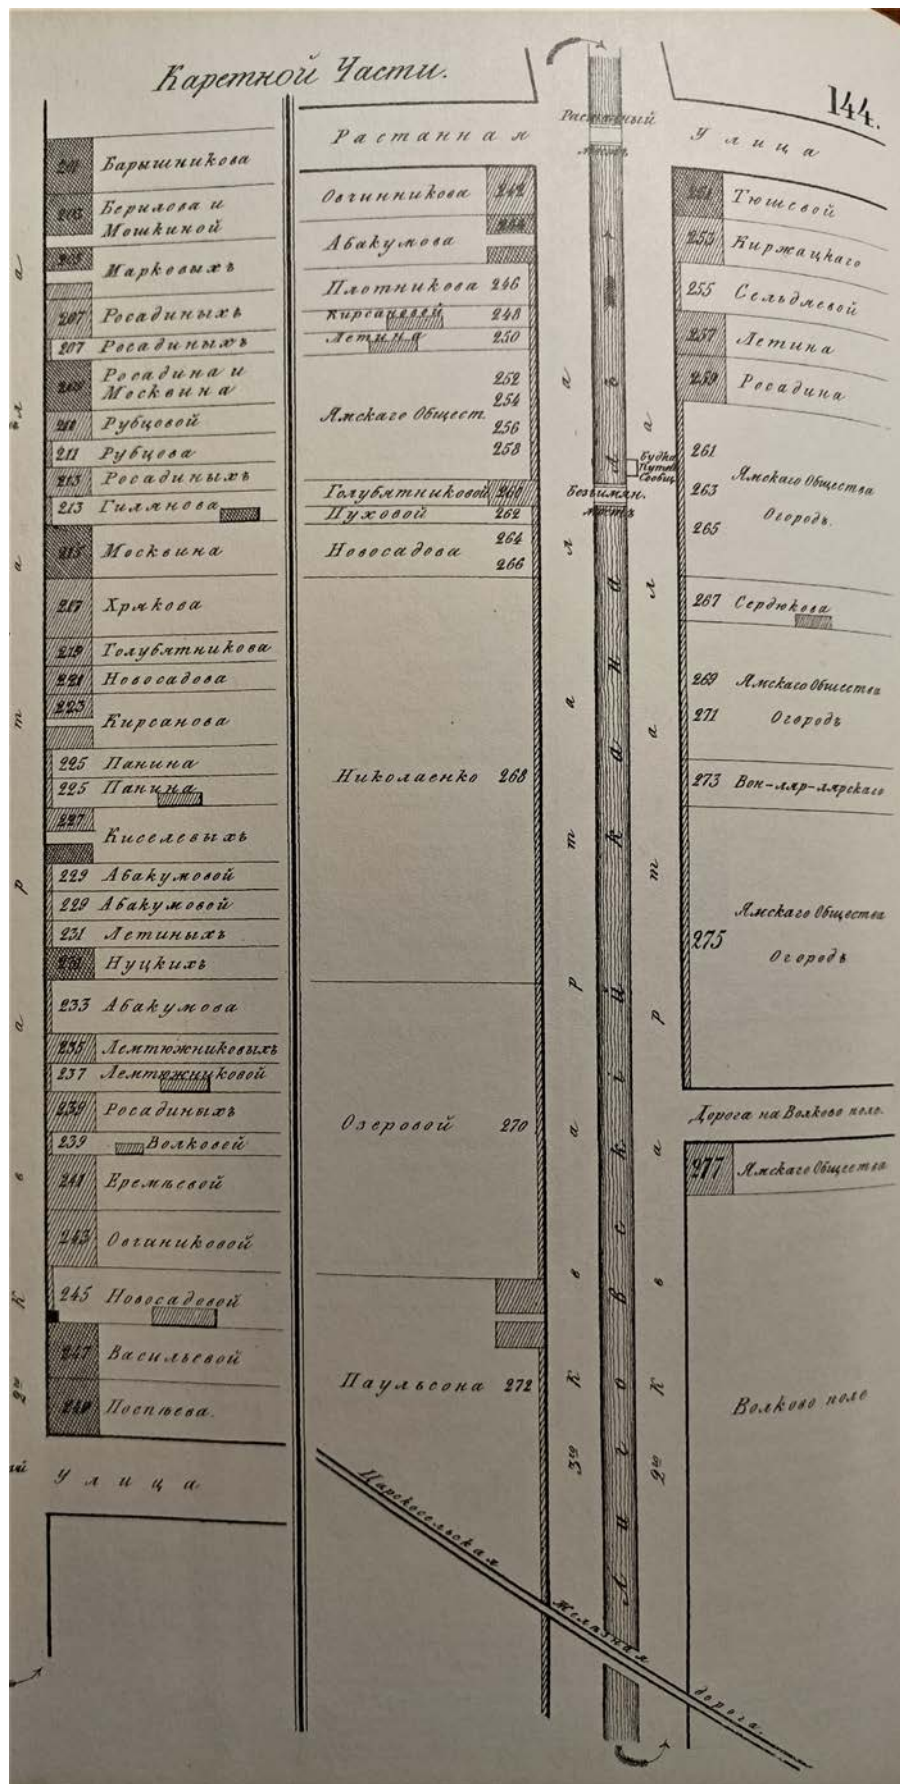 Каретной Части.
144.
Растанная
Улица
201 Барышникова
203 Берилова и
Мошкиной
205 Марковыхъ
207 Росадиныхъ
207 Росадиныхъ
209 Росадина и
Москвина
211 Рубцовой
211 Рубцова
213 Росадиныхъ
213 Гилянова
215 Москвина
217 Хрякова
219 Голубятникова
221 Новосадова
223 Кирсанова
225 Панина
225 Панина
227 Киселевыхъ
229 Абакумовой
229 Абакумовой
231 Летиныхъ
231 Нуцкихъ
233 Абакумова
235 Лемтюжниковыхъ
237 Лемтюжниковой
239 Росадиныхъ
239 Волковой
241 Еремѣевой
243 Овчиниковой
245 Новосадовой
247 Васильевой
249 Поспѣева.
Улица
Овчинникова 242
Абакумова 244
Плотникова 246
Кирсановой 248
Летина 250
Ямскаго Общест.
252
254
256
258
Голубятниковой 260
Пуховой 262
Новосадова
264
266
Николаенко 268
Озеровой 270
Паульсона 272
Растанный
мостъ
Безъимян.
мостъ
Будка
Путей
Сообщ.
Лиговскій каналъ
3го Квартала
2го Квартала
2го Квартала
251 Тюшевой
253 Киржацкаго
255 Сельдяевой
257 Летина
259 Росадина
261
263
265
Ямскаго Общества
Огородъ.
267 Сердюкова
269
271
Ямскаго Общества
Огородъ
273 Вон-ляр-лярскаго
275
Ямскаго Общества
Огородъ
Дорога на Волково поле.
277 Ямскаго Общества
Волково поле
Царскосельская Желѣзная дорога.